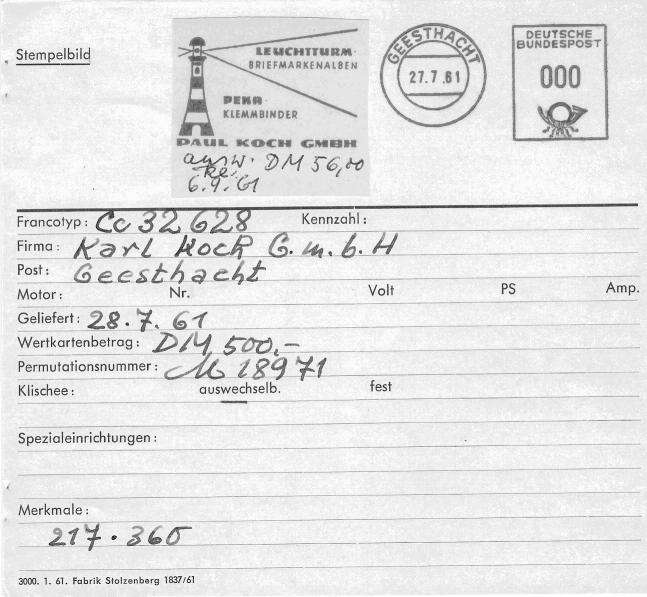 Stempelbild
LEUCHTTURM-
BRIEFMARKENALBEN
PEKA-
KLEMMBINDER
PAUL KOCH GMBH
ausw. DM 56,00
6.9.61
GEESTHACHT
27.7.61
DEUTSCHE
BUNDESPOST
000
Francotyp: Cc 32 628 Kennzahl:
Firma: Karl Koch G.m.b.H
Post: Geesthacht
Motor: Nr. Volt PS Amp.
Geliefert: 28.7.61
Wertkartenbetrag: DM 500,-
Permutationsnummer: M 18971
Klischee: auswechselb. fest
Spezialeinrichtungen:
Merkmale:
217.360
3000. 1. 61. Fabrik Stolzenberg 1837/61